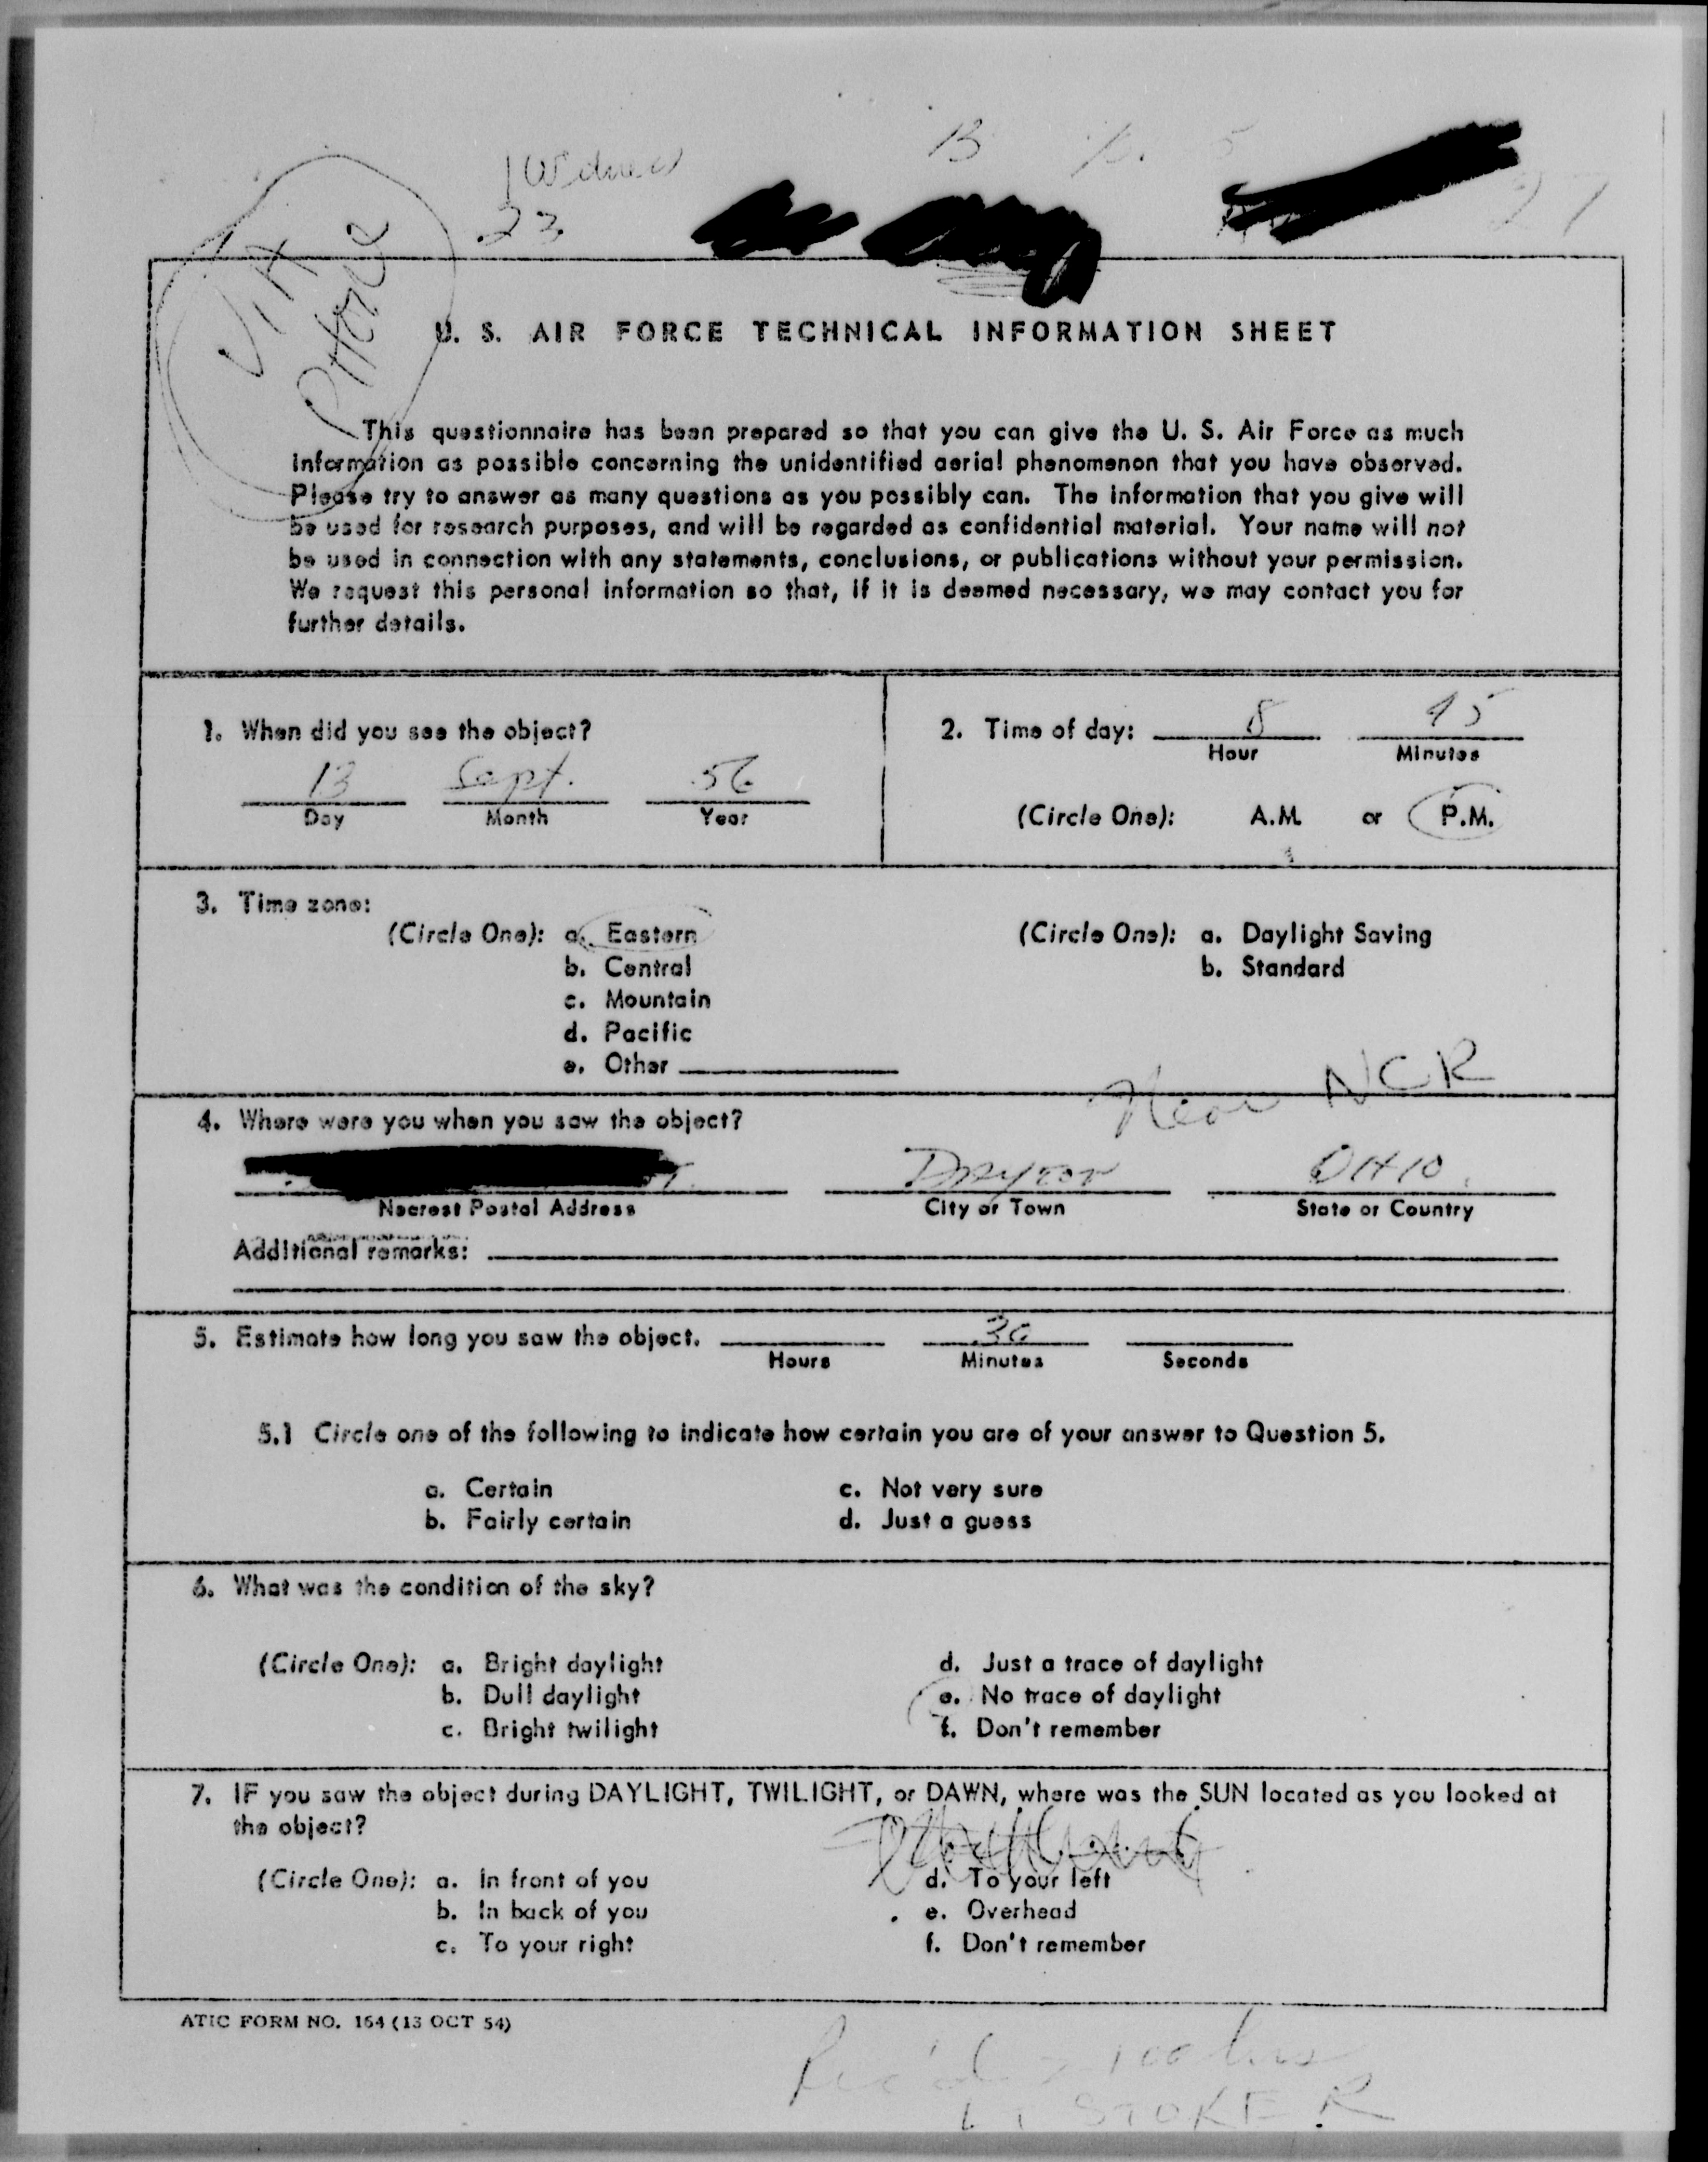 23
VIA
PHONE
U. S. AIR FORCE TECHNICAL INFORMATION SHEET
This questionnaire has been prepared so that you can give the U. S. Air Force as much
information as possible concerning the unidentified aerial phenomenon that you have observed.
Please try to answer as many questions as you possibly can. The information that you give will
be used for research purposes, and will be regarded as confidential material. Your name will not
be used in connection with any statements, conclusions, or publications without your permission.
We request this personal information so that, if it is deemed necessary, we may contact you for
further details.
1. When did you see the object?
13 Sept. 56
Day Month Year
2. Time of day: 8 45
Hour Minutes
(Circle One): A.M. or P.M.
3. Time zone:
(Circle One): a. Eastern
b. Central
c. Mountain
d. Pacific
e. Other
(Circle One): a. Daylight Saving
b. Standard
Near NCR
4. Where were you when you saw the object?
DAYTON OHIO
Nearest Postal Address City or Town State or Country
Additional remarks:
5. Estimate how long you saw the object. 30
Hours Minutes Seconds
5.1 Circle one of the following to indicate how certain you are of your answer to Question 5.
a. Certain c. Not very sure
b. Fairly certain d. Just a guess
6. What was the condition of the sky?
(Circle One): a. Bright daylight d. Just a trace of daylight
b. Dull daylight e. No trace of daylight
c. Bright twilight f. Don't remember
7. IF you saw the object during DAYLIGHT, TWILIGHT, or DAWN, where was the SUN located as you looked at
the object?
(Circle One): a. In front of you d. To your left
b. In back of you e. Overhead
c. To your right f. Don't remember
ATIC FORM NO. 164 (13 OCT 54)
Rec'd
LT STOKER